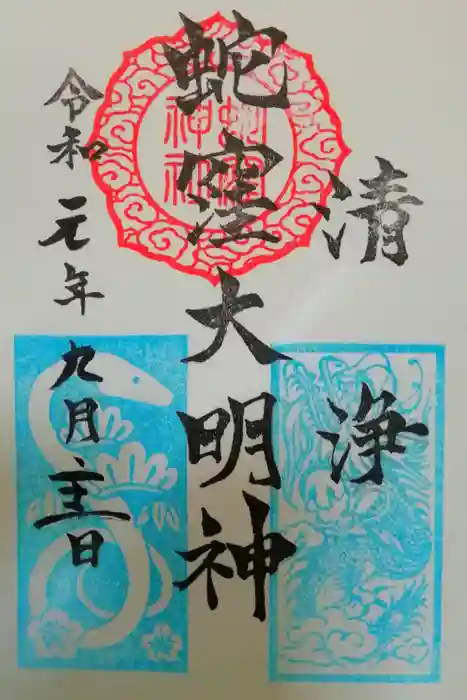 清浄
蛇窪大明神
蛇窪
神社
令和元年九月日